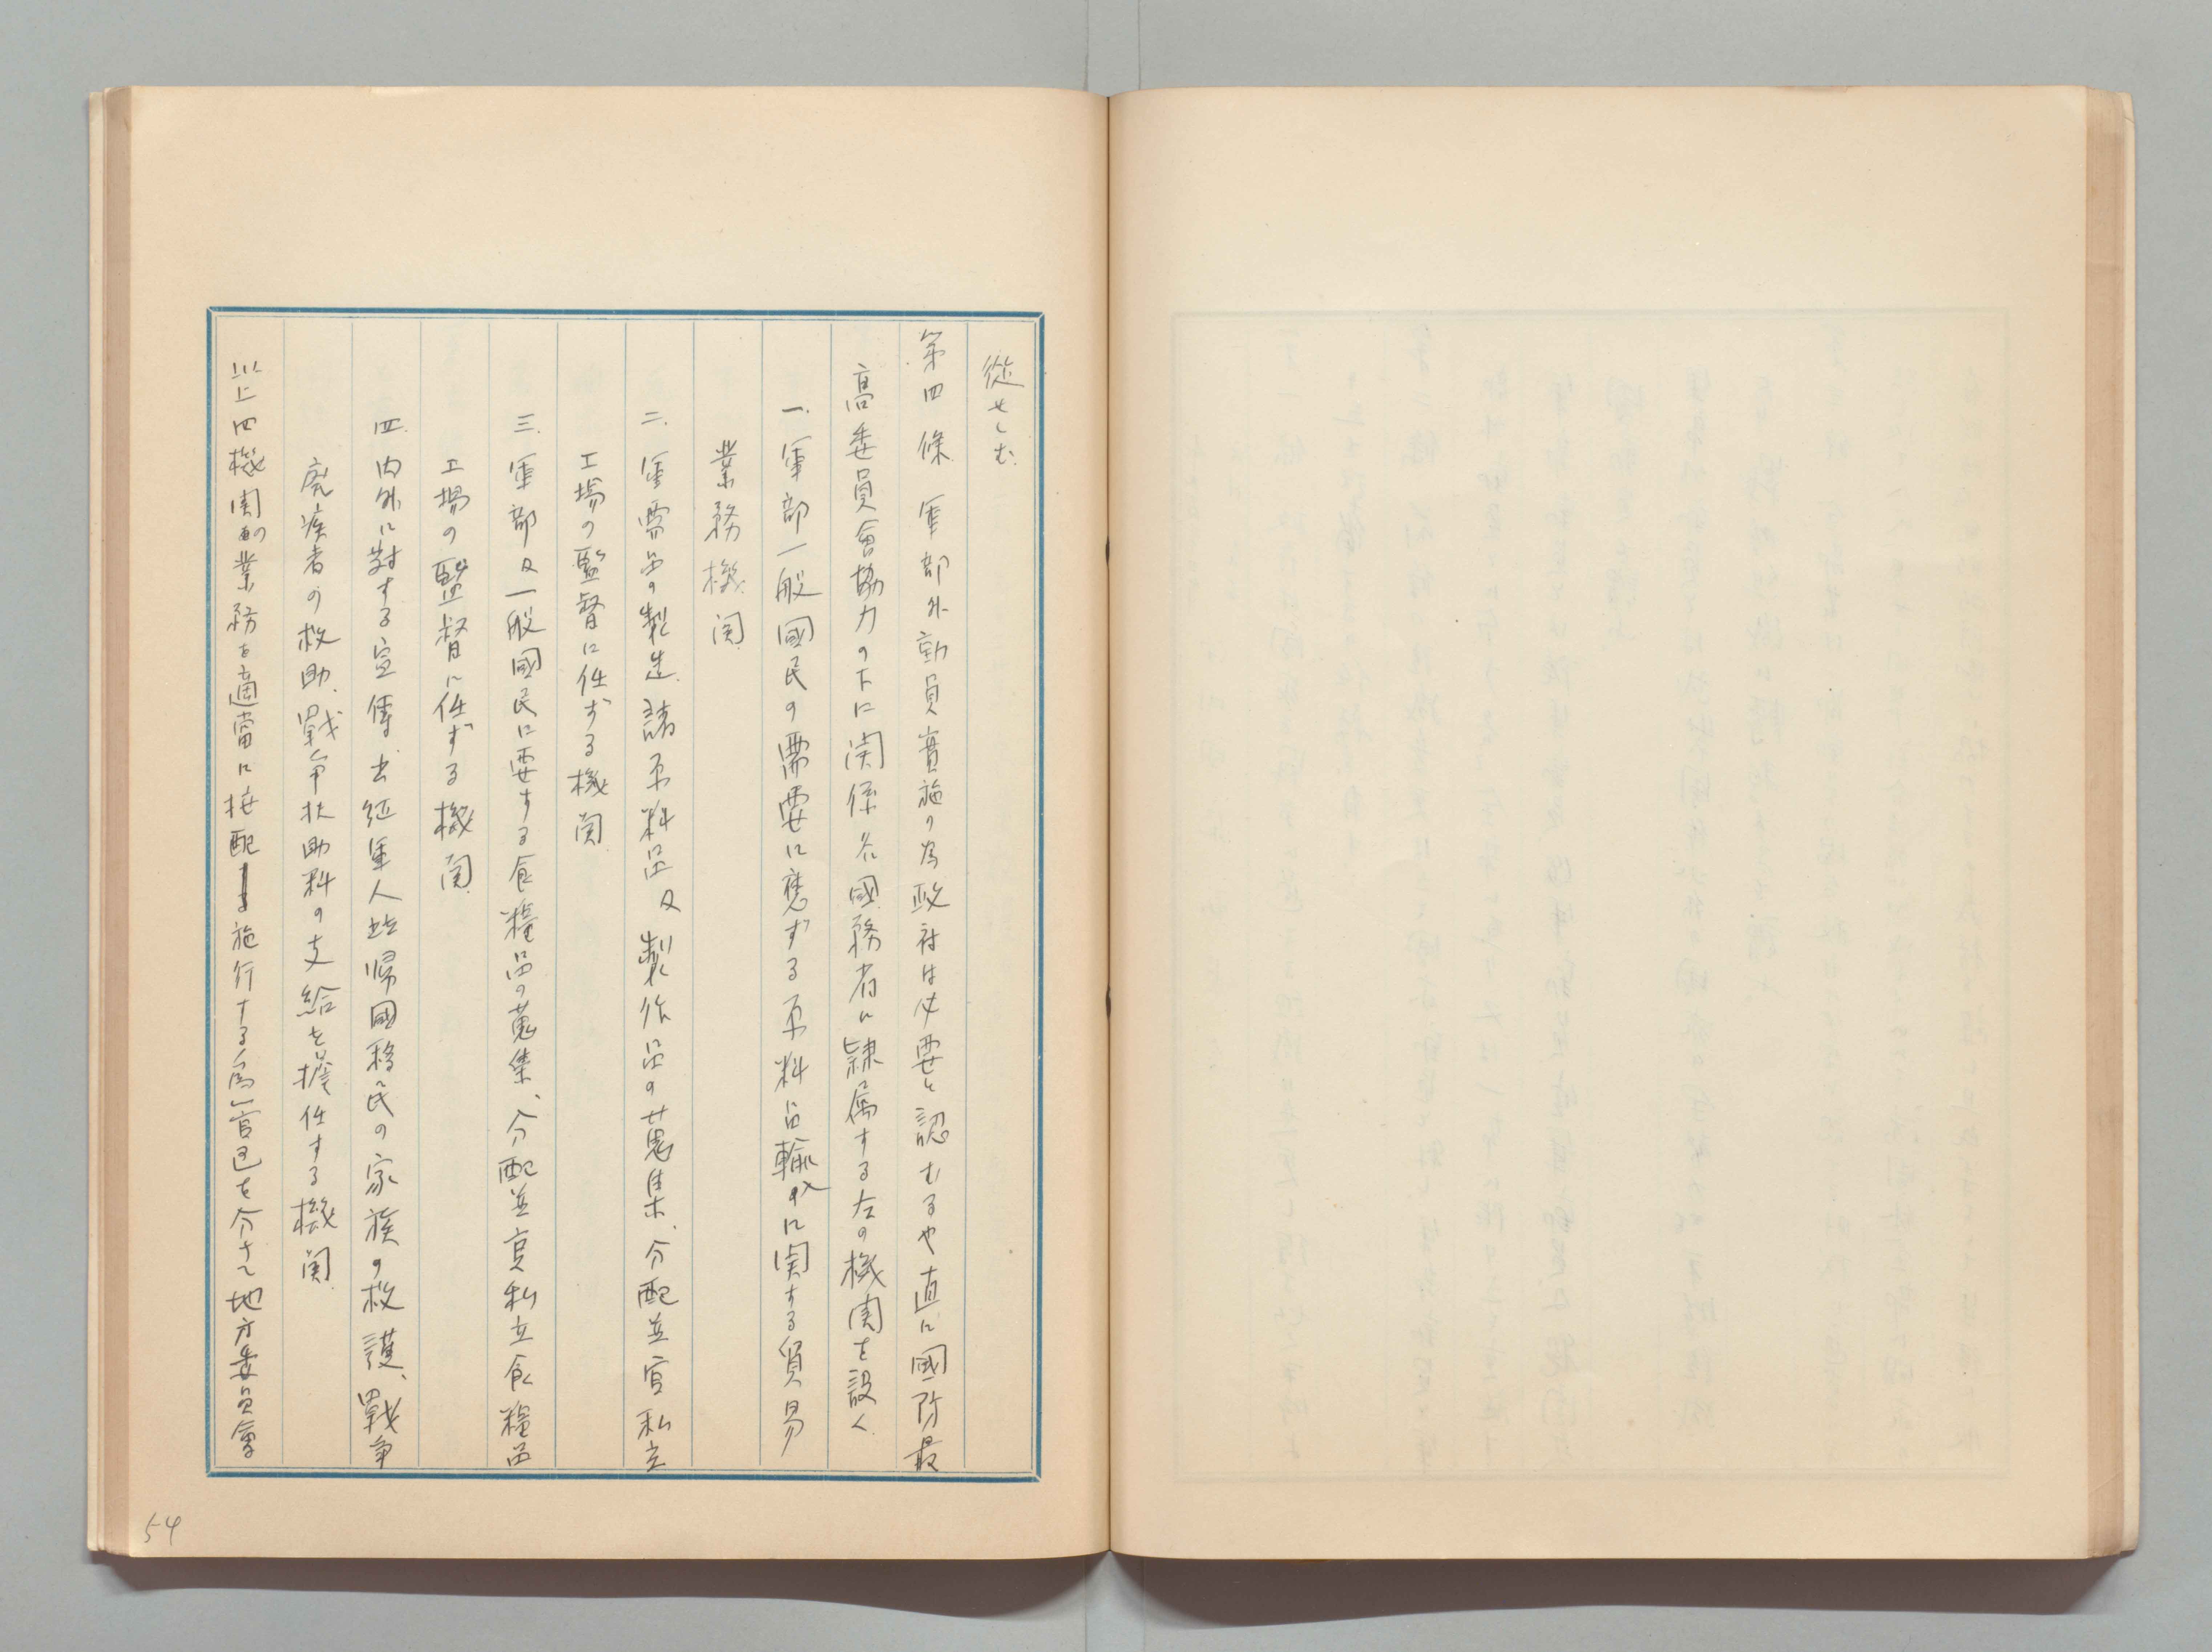 從せしむ
第四條 軍部外動員實施の為政府は必要と認むるや直に國防最
高委員會協力の下に関係各國務省に隷属する左の機関を設く
一、軍部一般國民の需要に應ずる原料品輸入に関する貿易
業務機関
二、軍需品の製造諸原料品及製作品の蒐集、分配並官私立
工場の監督に任ずる機関
三、軍部及一般國民に要する食糧品の蒐集、分配並官私立食糧品
工場の監督に任ずる機関
四、内外に対する宣傳、出征軍人並帰國移民の家族の救護、戰争
廃疾者の救助、戰争扶助料の支給を擔任する機関
以上四機関の業務を適當に按配し施行する為官邑を分ちて地方委員會
54